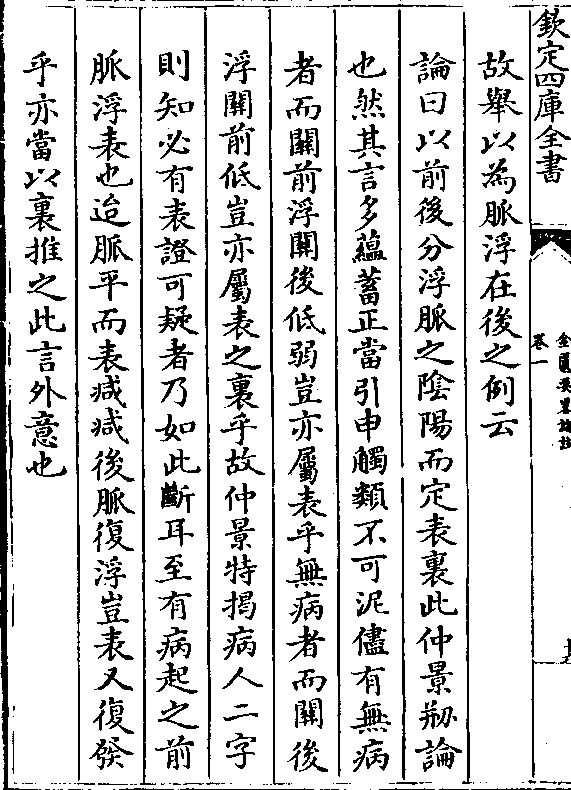 欽定四庫全書
金匱要畧論註
卷一
故舉以為脈浮在後之例云
論曰以前後分浮脈之陰陽而定表裏此仲景剏論
也然其言多蘊蓄正當引申觸類不可泥儘有無病
者而關前浮關後低弱豈亦屬表乎無病者而關後
浮關前低豈亦屬表之裏乎故仲景特揭病人二字
則知必有表證可疑者乃如此斷耳至有病起之前
脈浮表也迨脈平而表減減後脈復浮豈表又復發
乎亦當以裏推之此言外意也